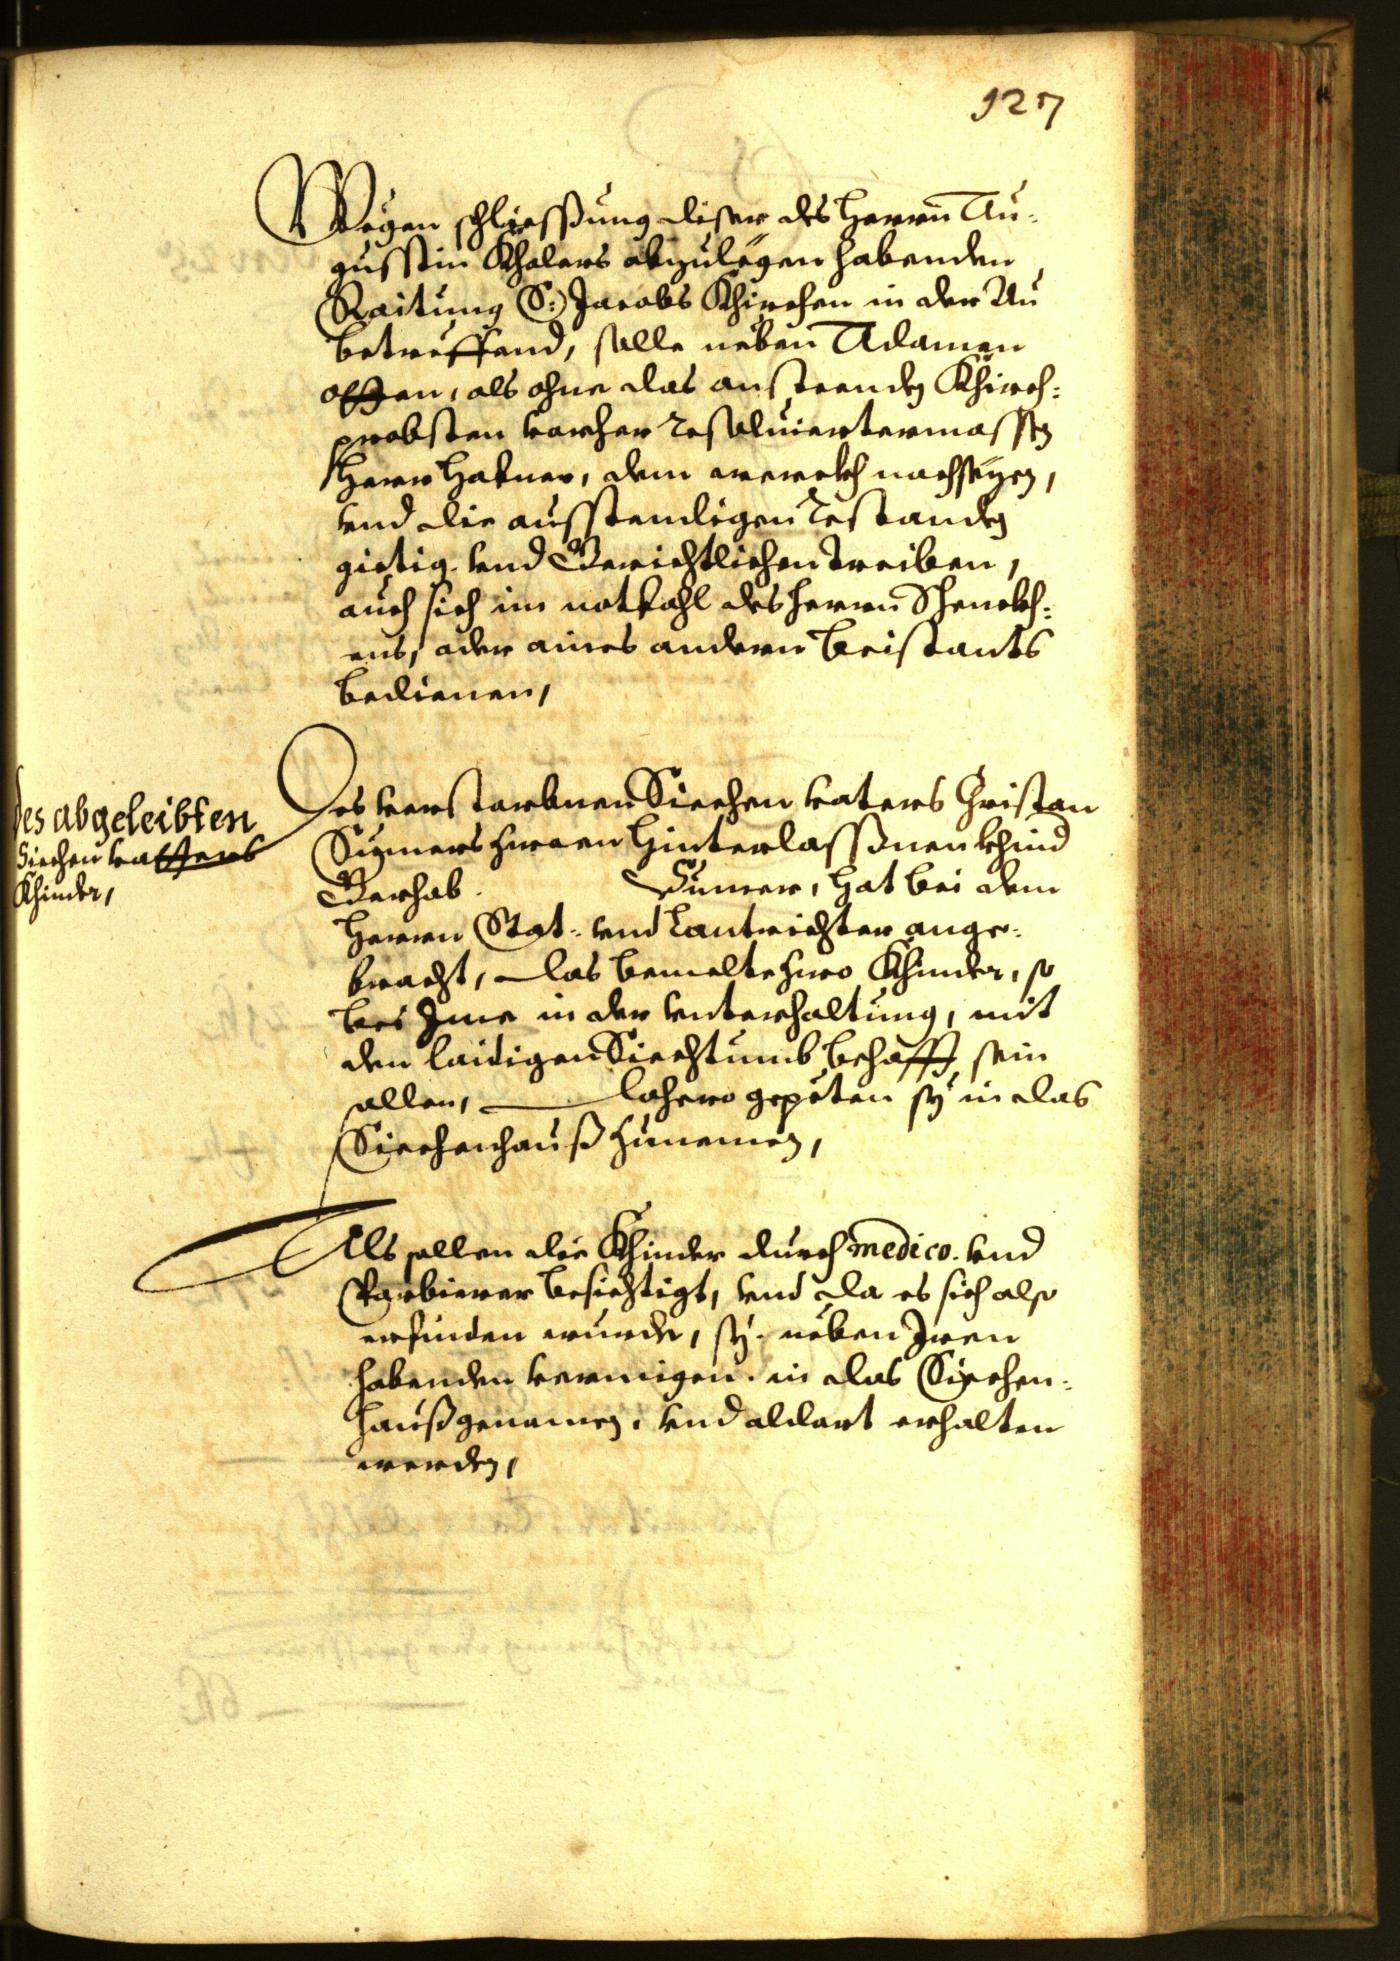 127
Wegen schliessung diser des Herrn Au¬
gusstin Khalers abzulegen habenden
Raitung S: Jacobs Khirchen in der Au
betreffend, solle neben Adamen
Offen, als ohne das ansteenden Khirch¬
probsten vorher resolviertermassen
Herr Hafner, dem werckh nachsezen,
vnd die ausstendigen restanden
gietig vnd Gerichtlichen treiben,
auch sich im notfahl des Herrn Schenckh¬
ens, oder aines andern beistants
bedienen,
des abgeleibten
Siechen vatters
Khinder,
Des verstorbnen Siechen vaters Cristan
hinterlassnen khind
Gerhab
hat bei dem
Herrn Stat- vnd Lantrichter ange¬
bracht, das bemelte zwo Khinder, so
bei Ime in der vnterhaltung, mit
den laidigen Siechtumb behafft sein
sollen, dahero gepeten sy in das
Siechenhauß zunemen,
Als sollen die Khinder durch medico vnd
Parbierer besichtigt, vnd da es sich also
erfinden wurde, sy neben Iren
habenden vermigen in das Siechen¬
hauß genomen, vnd aldort erhalten
werden,